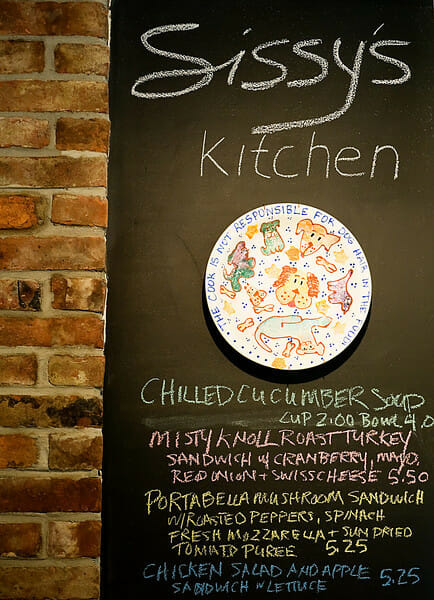 Sissy's
Kitchen
THE COOK IS NOT RESPONSIBLE FOR DOG HAIR IN THE FOOD!
CHILLED CUCUMBER SOUP
CUP 2.00 BOWL 4.0
MISTY KNOLL ROAST TURKEY
SANDWICH W/ CRANBERRY, MAYO,
RED ONION + SWISS CHEESE 5.50
PORTABELLA MUSHROOM SANDWICH
W/ROASTED PEPPERS, SPINACH
FRESH MOZZARELLA + SUN DRIED
TOMATO PUREE 5.25
CHICKEN SALAD AND APPLE 5.25
SANDWICH W LETTUCE